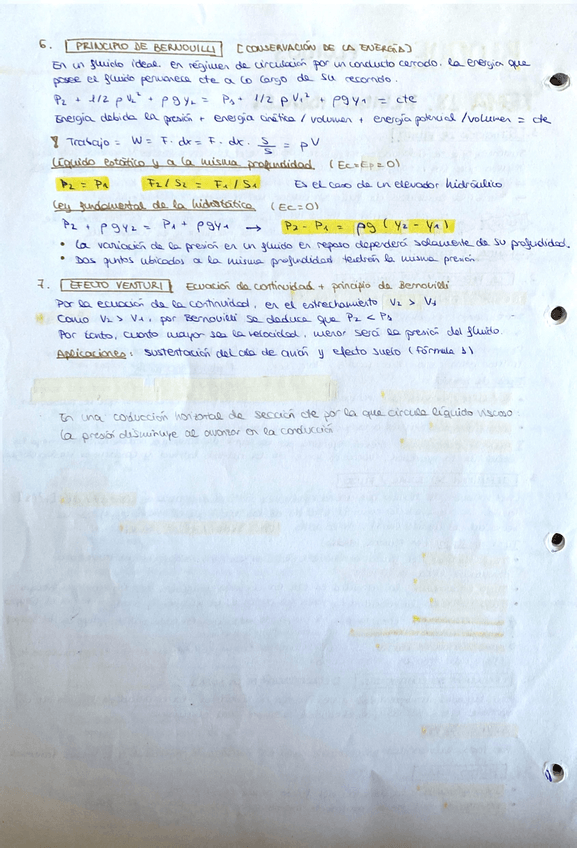 6. PRINCIPIO DE BERNOUILLI [CONSERVACIÓN DE LA ENERGÍA]
En un fluido ideal, en régimen de circulación por un conducto cerrado, la energía que
posee el fluido permanece cte a lo largo de su recorrido.
P2 + 1/2 ρ V2² + ρ g y2 = P1 + 1/2 ρ V1² + ρ g y1 = cte
Energía debida la presión + energía cinética / volumen + energía potencial / volumen = cte
Trabajo = W = F · dx = F · dx · S/S = pV
Líquido estático y a la misma profundidad (Ec=Ep=0)
P2 = P1 F2/S2 = F1/S1 Es el caso de un elevador hidráulico
Ley fundamental de la hidrostática (Ec=0)
P2 + ρgy2 = P1 + ρgy1 → P2 - P1 = ρg (y2 - y1)
• La variación de la presión en un fluido en reposo dependerá solamente de su profundidad.
• Dos puntos ubicados a la misma profundidad tendrán la misma presión.
7. EFECTO VENTURI Ecuación de continuidad + principio de Bernouilli
Por la ecuación de la continuidad, en el estrechamiento V2 > V1
Como V2 > V1, por Bernouilli se deduce que P2 < P1
Por tanto, cuanto mayor sea la velocidad, menor será la presión del fluido.
Aplicaciones: sustentación del ala de avión y efecto suelo (Fórmula 1)
En una conducción horizontal de sección cte por la que circula líquido viscoso:
la presión disminuye al avanzar en la conducción